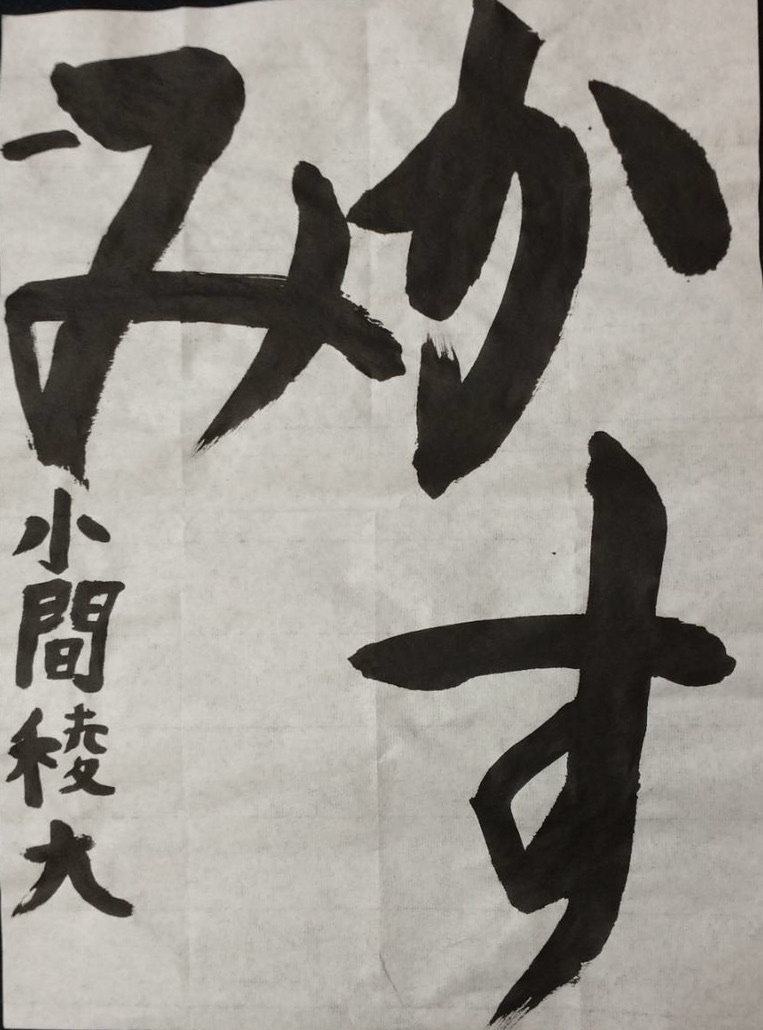 かす
み
一 小間稜大